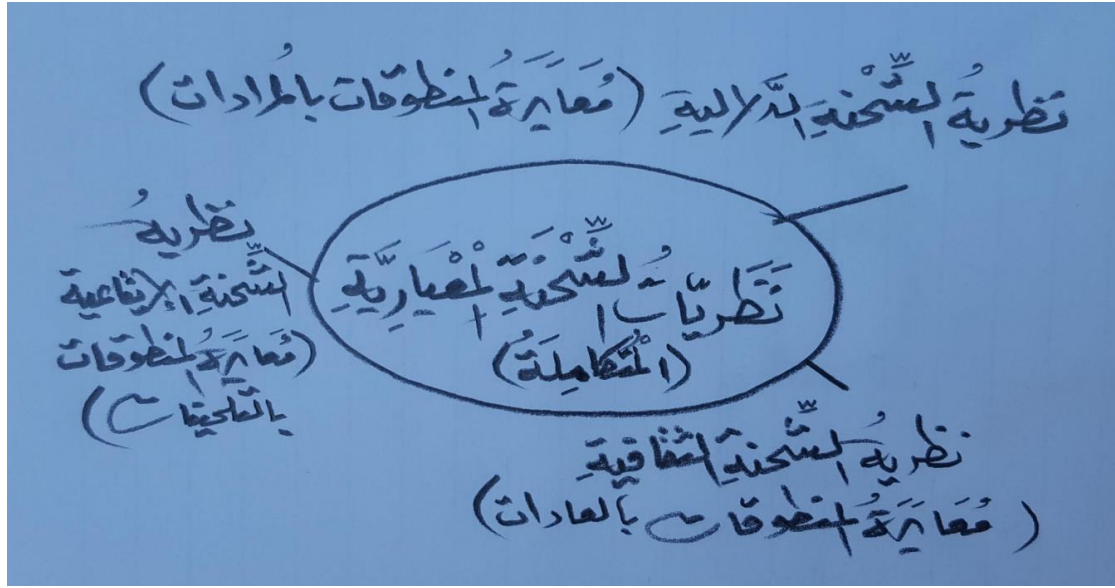 نظريةُ الشِّحْنةِ الدَّلاليةِ (مُعَايَرَةُ المنطوقات بالمُرادات)
نَظَرِيّاتُ الشِّحْنَةِ الْمِعْيَارِيَّةِ
(الْمُتَكامِلَةُ)
نظريةُ
الشِّحنةِ الإيقاعية
(مُعايَرَةُ المنطوقات
بالتلحينات)
نظريةُ الشِّحنةِ الثقافيةِ
(مُعَايَرَةُ المنطوقات بالعادات)